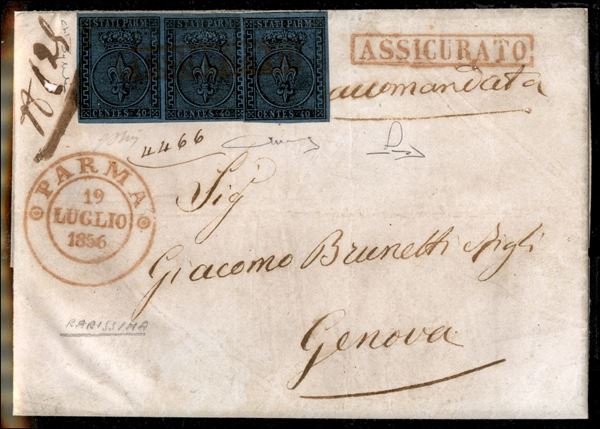 STATI PARM. STATI PARM. STATI PARM.
CENTES. 40 CENTES. 40 CENTES. 40
ASSICURATO
Raccomandata
4466
PARMA
19
LUGLIO
1856
Sig.
Giacomo Brunetti
Genova
RARISSIMA